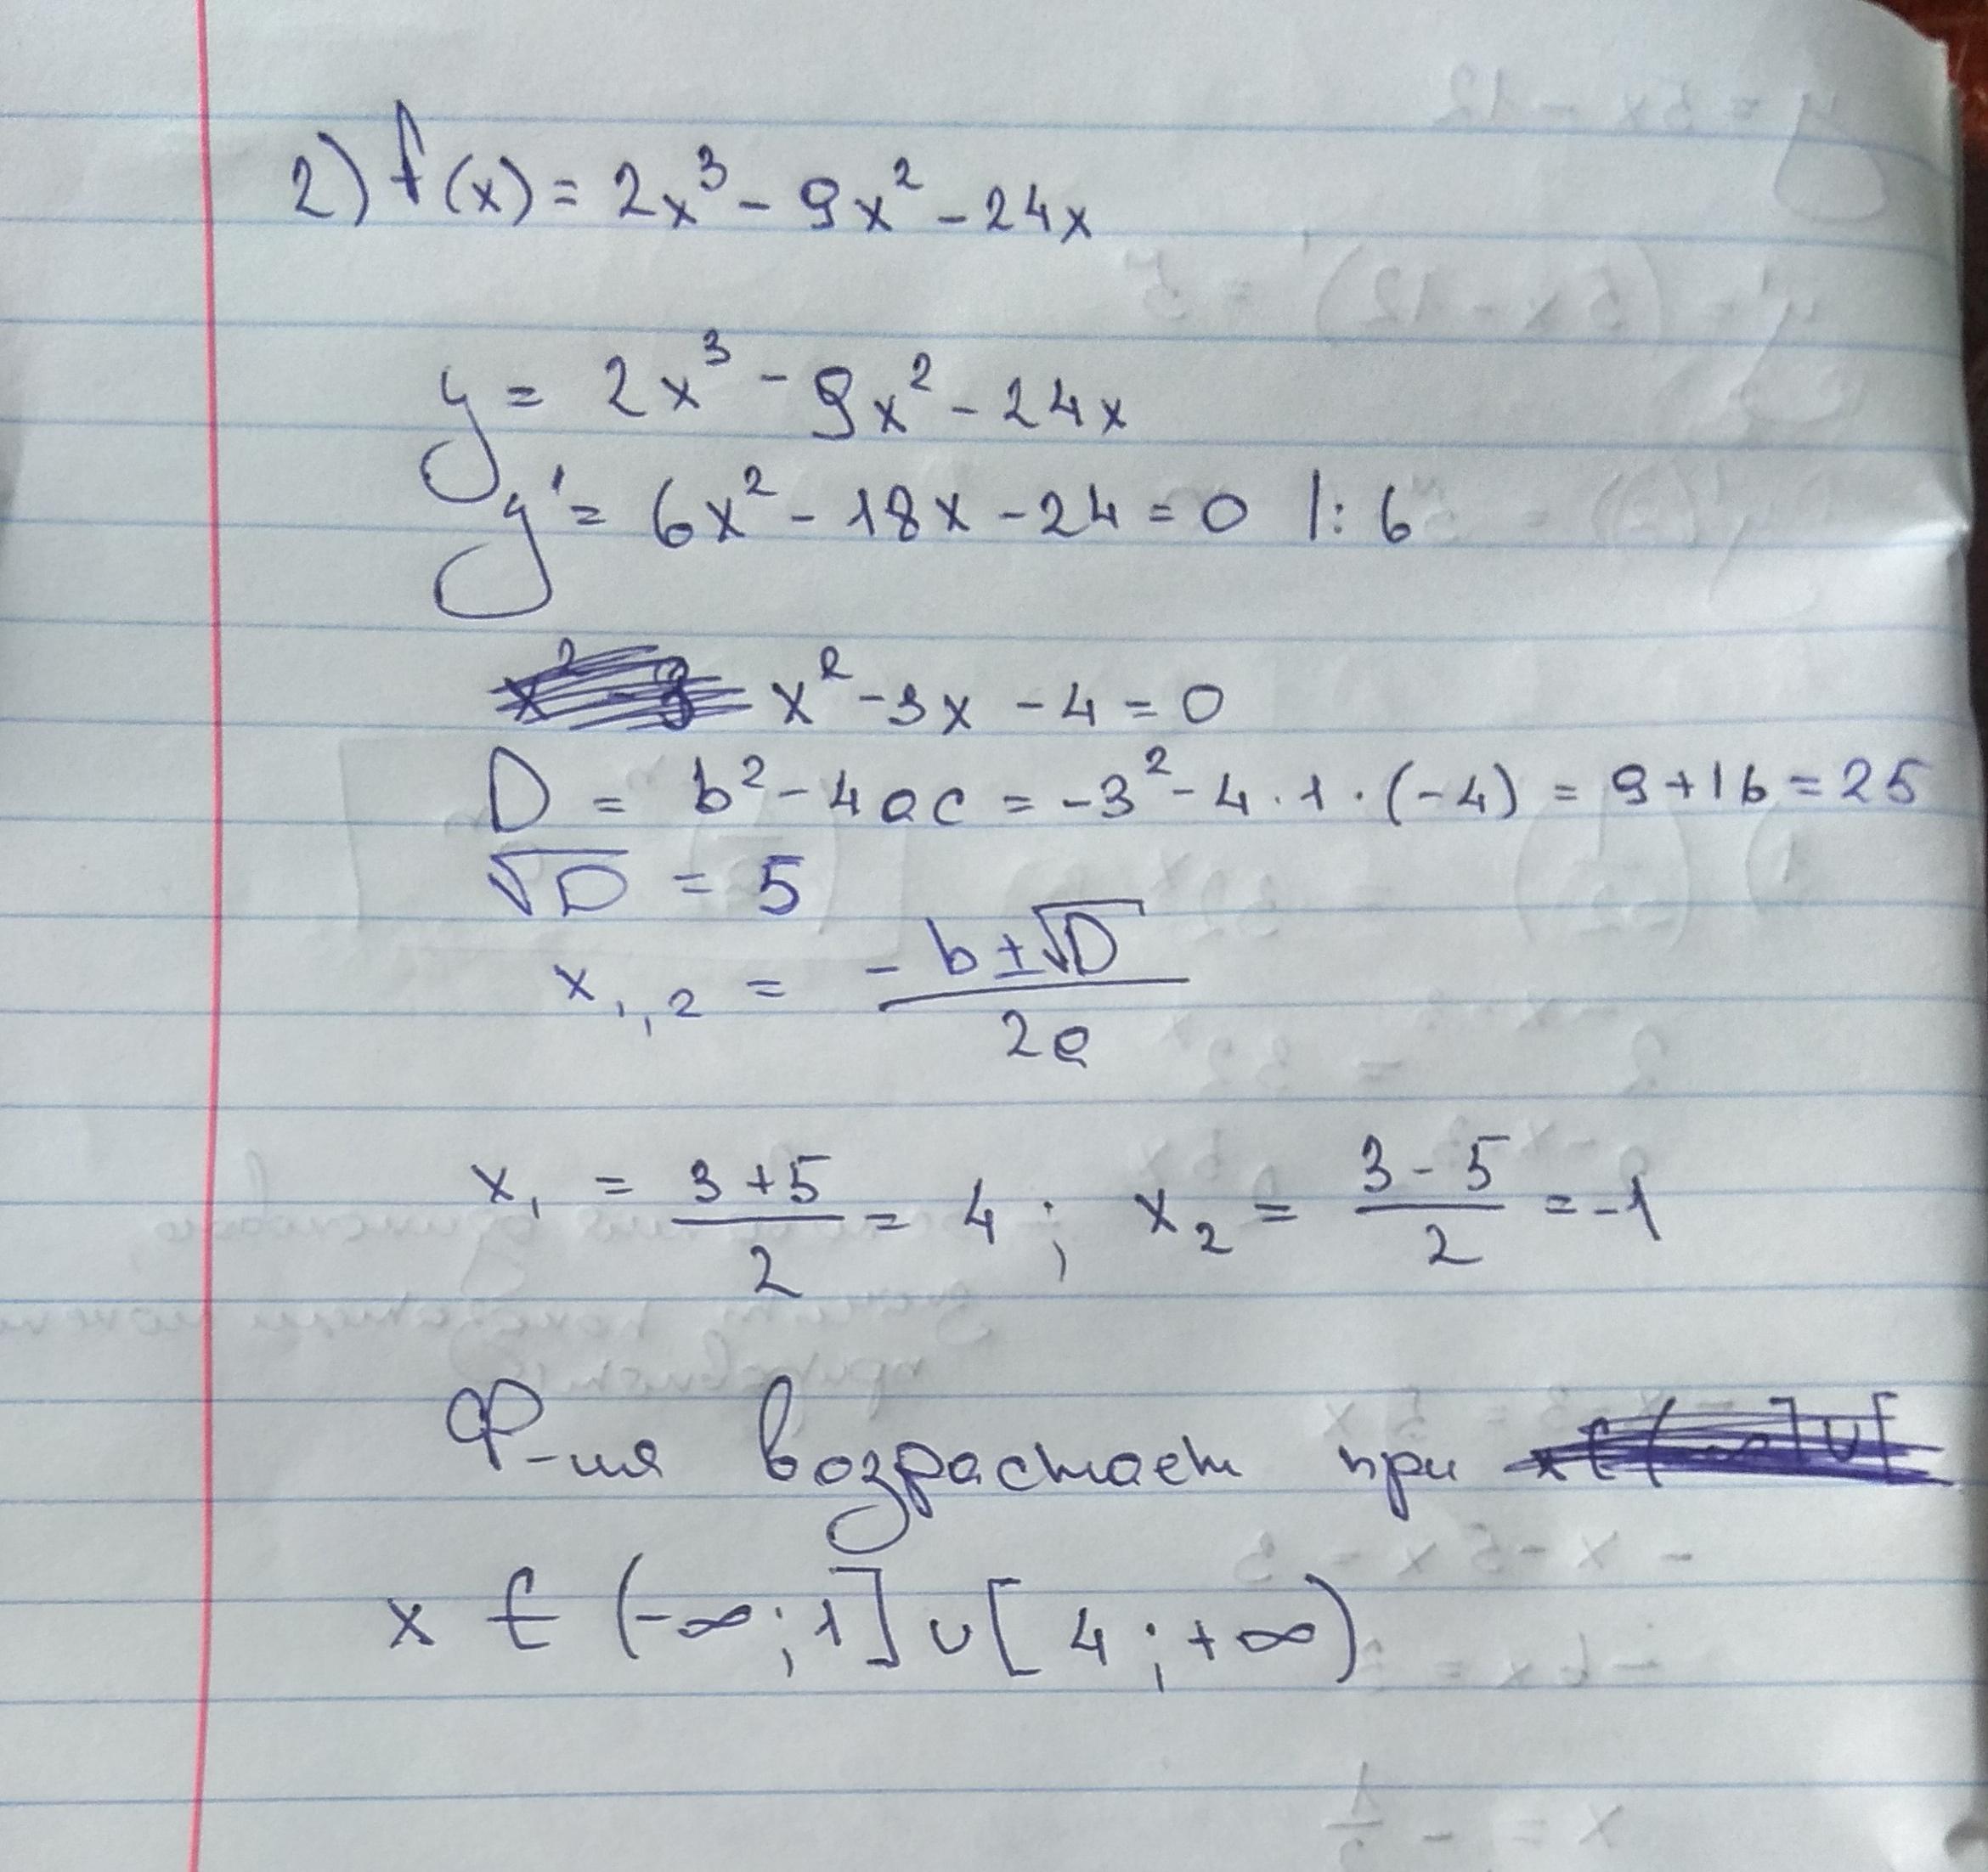 2) f(x) = 2x³ - 9x² - 24x
y = 2x³ - 9x² - 24x
y' = 6x² - 18x - 24 = 0 |: 6
x² - 3x - 4 = 0
D = b² - 4ac = -3² - 4 · 1 · (-4) = 9 + 16 = 25
√D = 5
x₁,₂ = (-b ± √D) / 2a
x₁ = (3 + 5) / 2 = 4 ; x₂ = (3 - 5) / 2 = -1
Ф-ия возрастает при
x ∈ (-∞; 1] ∪ [4; +∞)